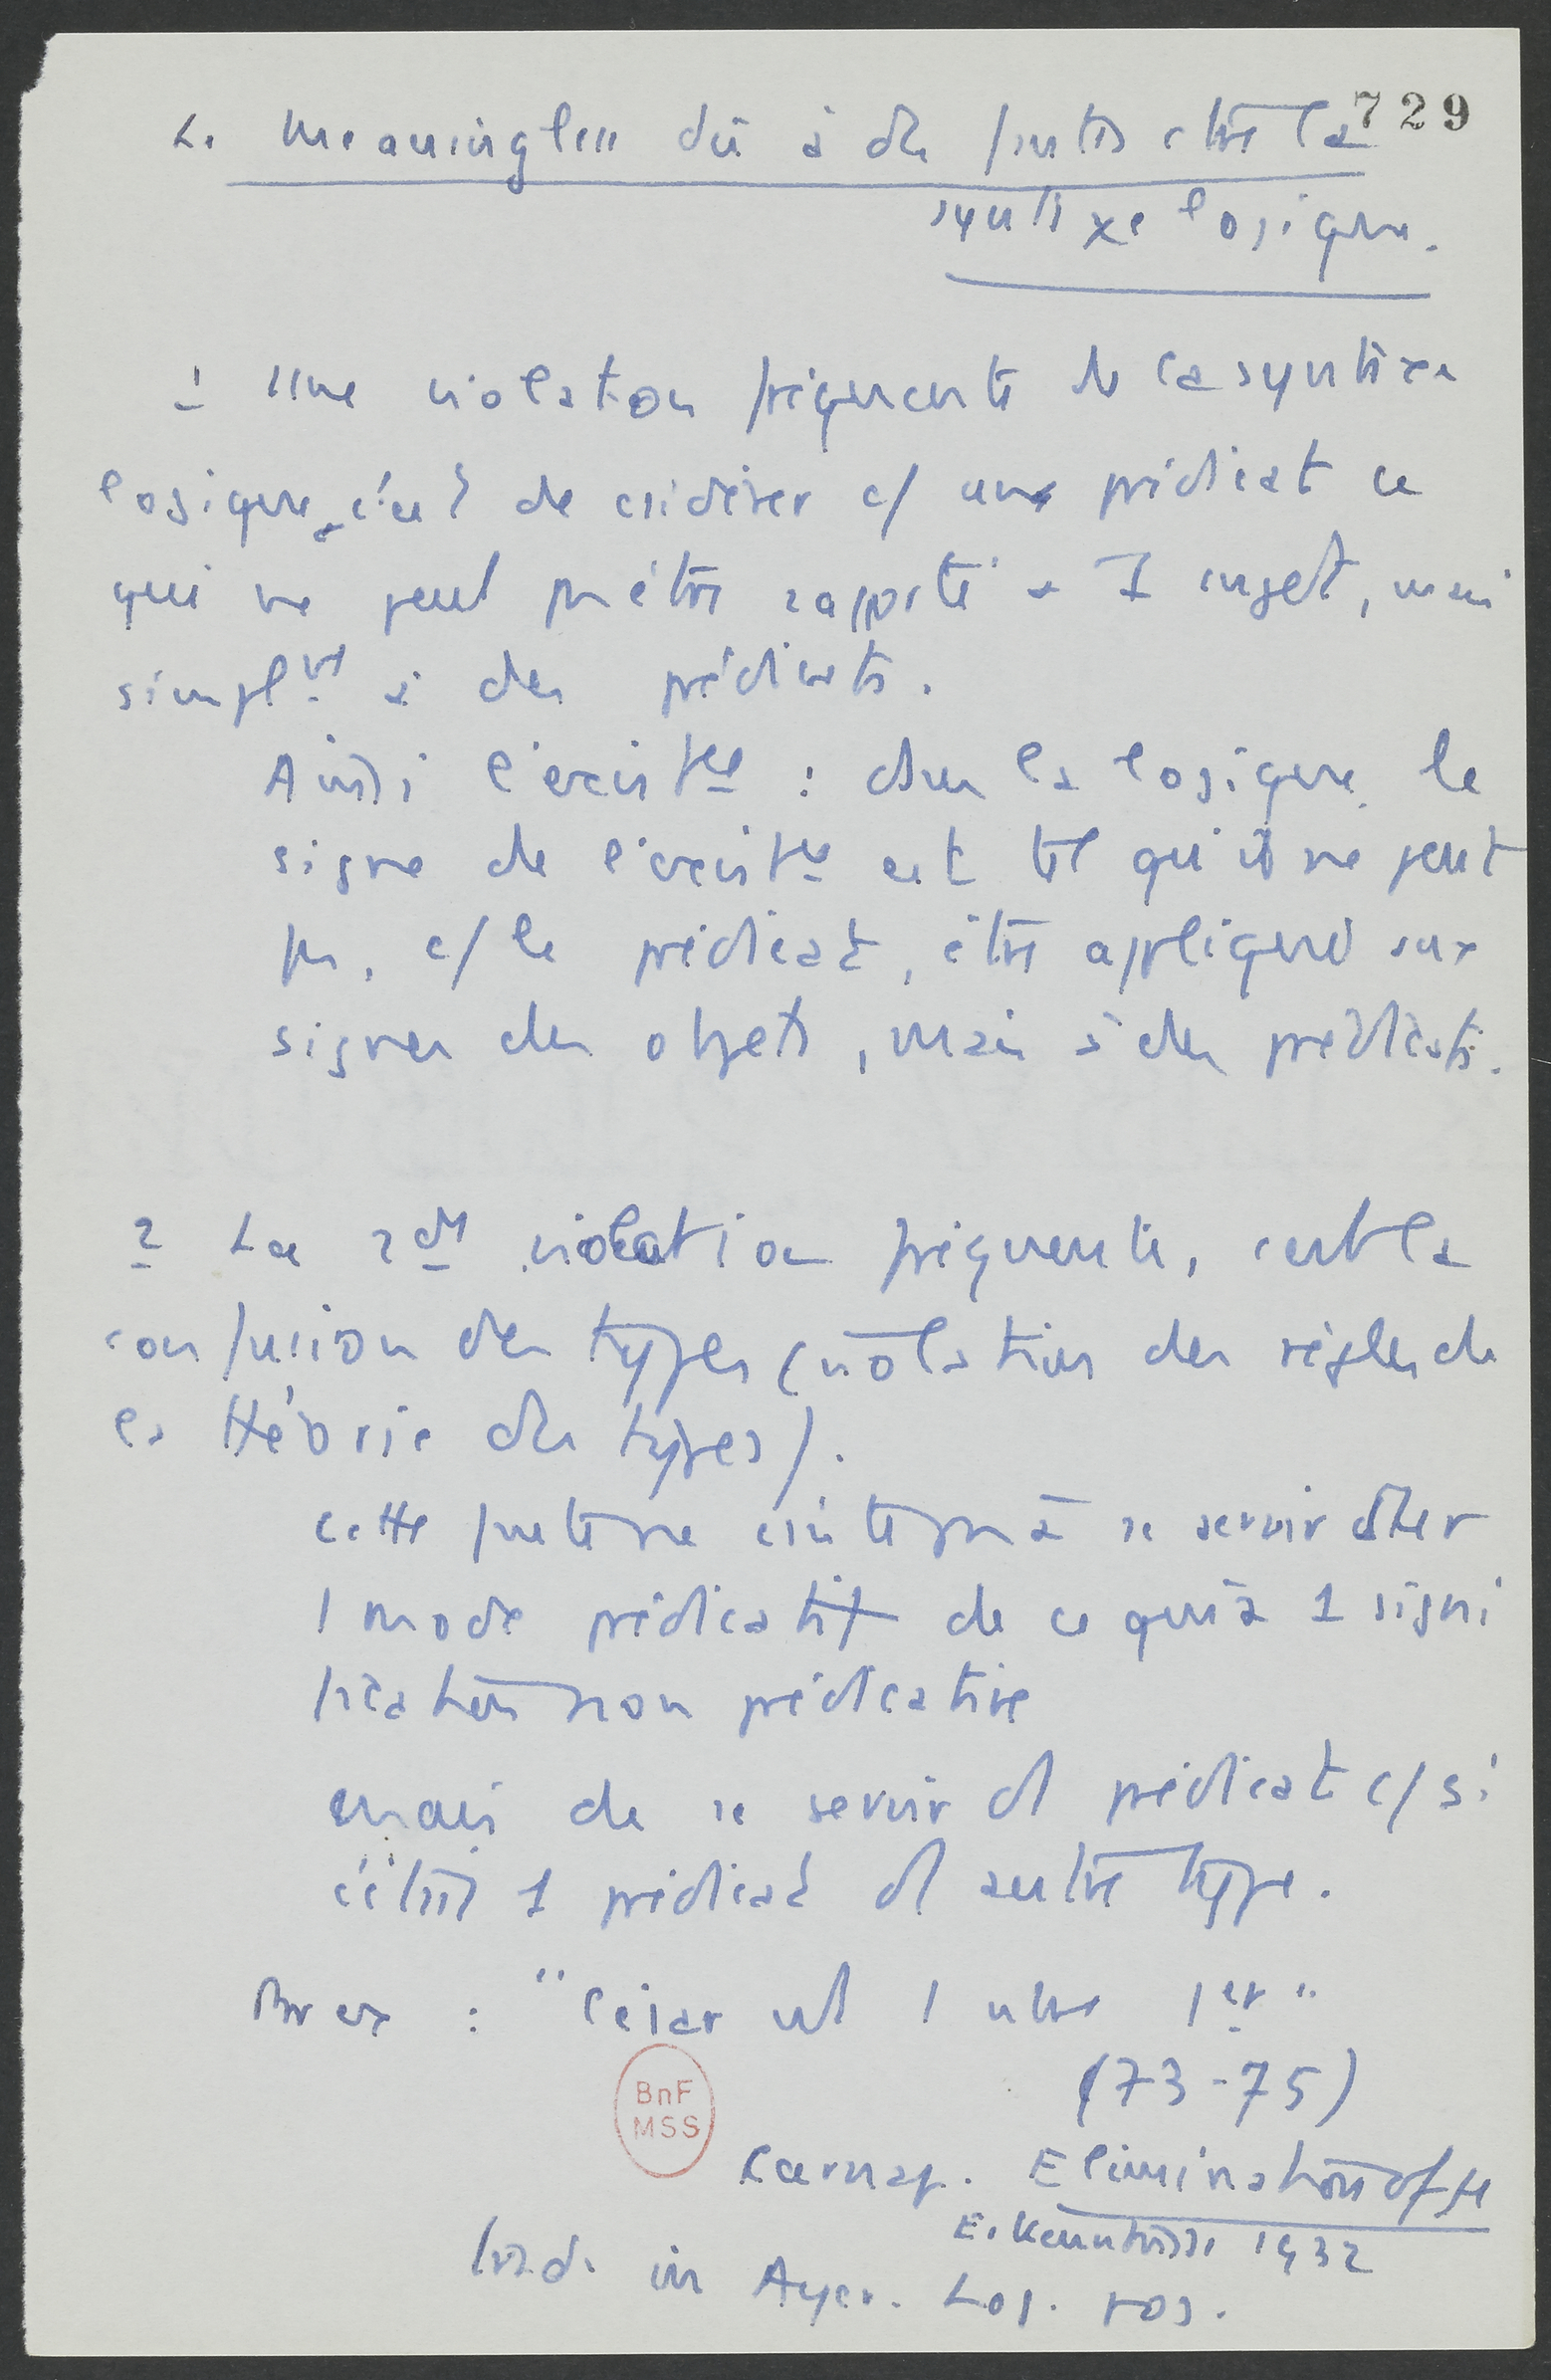 729
Le Meaningless dû à des fautes ctre la
syntaxe logique.
1 Une violation fréquente de la syntaxe
logique, c'est de csidérer c/ un prédicat ce
qui ne peut pas être rapporté à 1 objet, mais
simplmt à des prédicats.
Ainsi l'existce : dans la logique le
signe de l'existce est tel qu'il ne peut
pas, c/ le prédicat, être appliqué aux
signes des objets, mais à des prédicats.
2 La 2de violation fréquente, c'est la
confusion des types (violation des règles de
la théorie des types).
cette faute ne csiste pas à se servir ds
1 mode prédicatif de ce qui a 1 signi
fication non prédicative
mais de se servir d' prédicat c/ si
c'était 1 prédicat d' autre type.
Par ex : "César est 1 nbre 1er"
(73-75)
BnF
MSS
Carnap. Elimination of the
Erkenntniss 1932
trad. in Ayer. Log. pos.